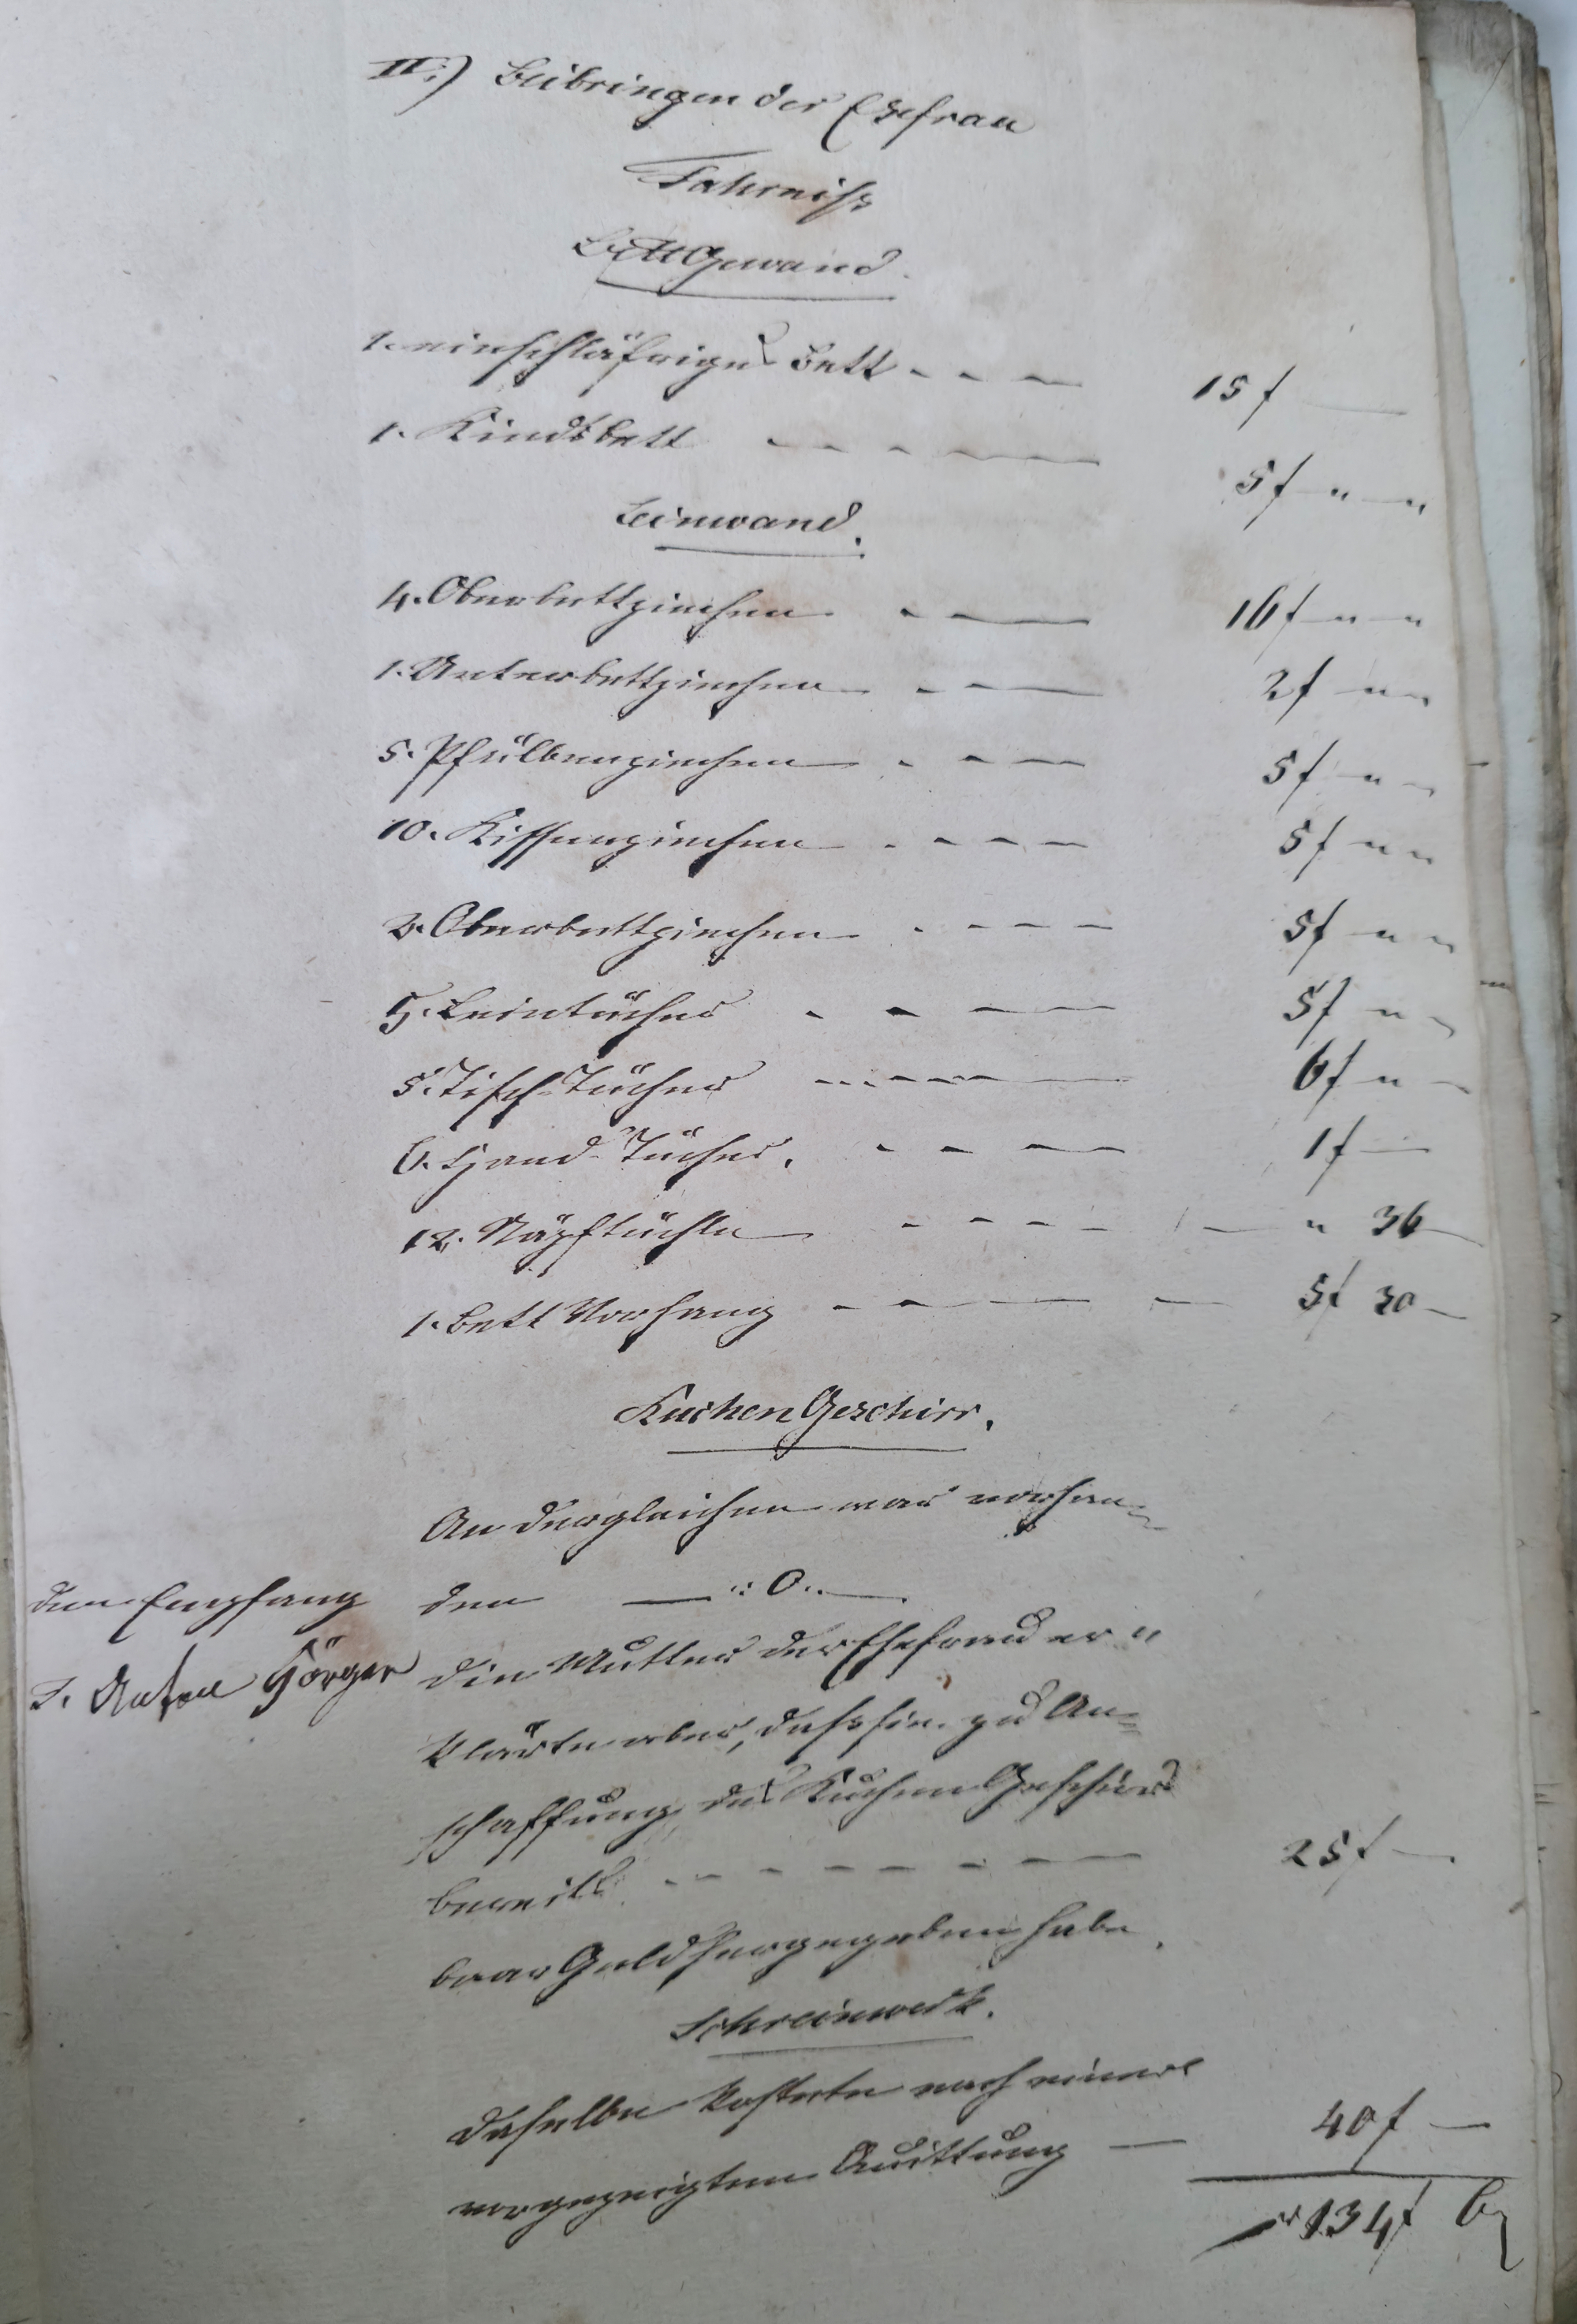 II.) Beibringen der Ehefrau
Fahrniss
BettGewand.
1. einschläfriges Bett - - - 15 f —
1. Kindsbett - - - - - 5 f " — "
Leinwand.
4. Oberbettziechen - — 16 f — " — "
1. Unterbettziechen - - — 2 f — " "
5. Pfülbenziechen - - — 5 f — " —
10. Kissenziechen - - - - 5 f — " "
2. Oberbettziechen - - - - 5 f — " "
5. Leintücher - - — — 5 f — " —
5. Tisch-Tücher - - - - — 6 f — " —
6. Hand-Tücher. - - — — 1 f —
12. Näpftüchle - - - - — " 36
1. Bett Vorhang - - — — — 5 f 30 —
KuchenGeschirr.
An dergleichen war vorhan-
den — .: 0 .. —
den Empfang
T. Anton Görger
die Mutter der Ehefrau er"
klärte aber, dass sie zu An=
schaffung des KuchenGeschirrs
bereits - - - - - — — 25 f —
baar Geld hergegeben habe.
Schreinwerk.
Daselbe kostete nach einer
vorgezeigten Quittung — 40 f —
134 f 6